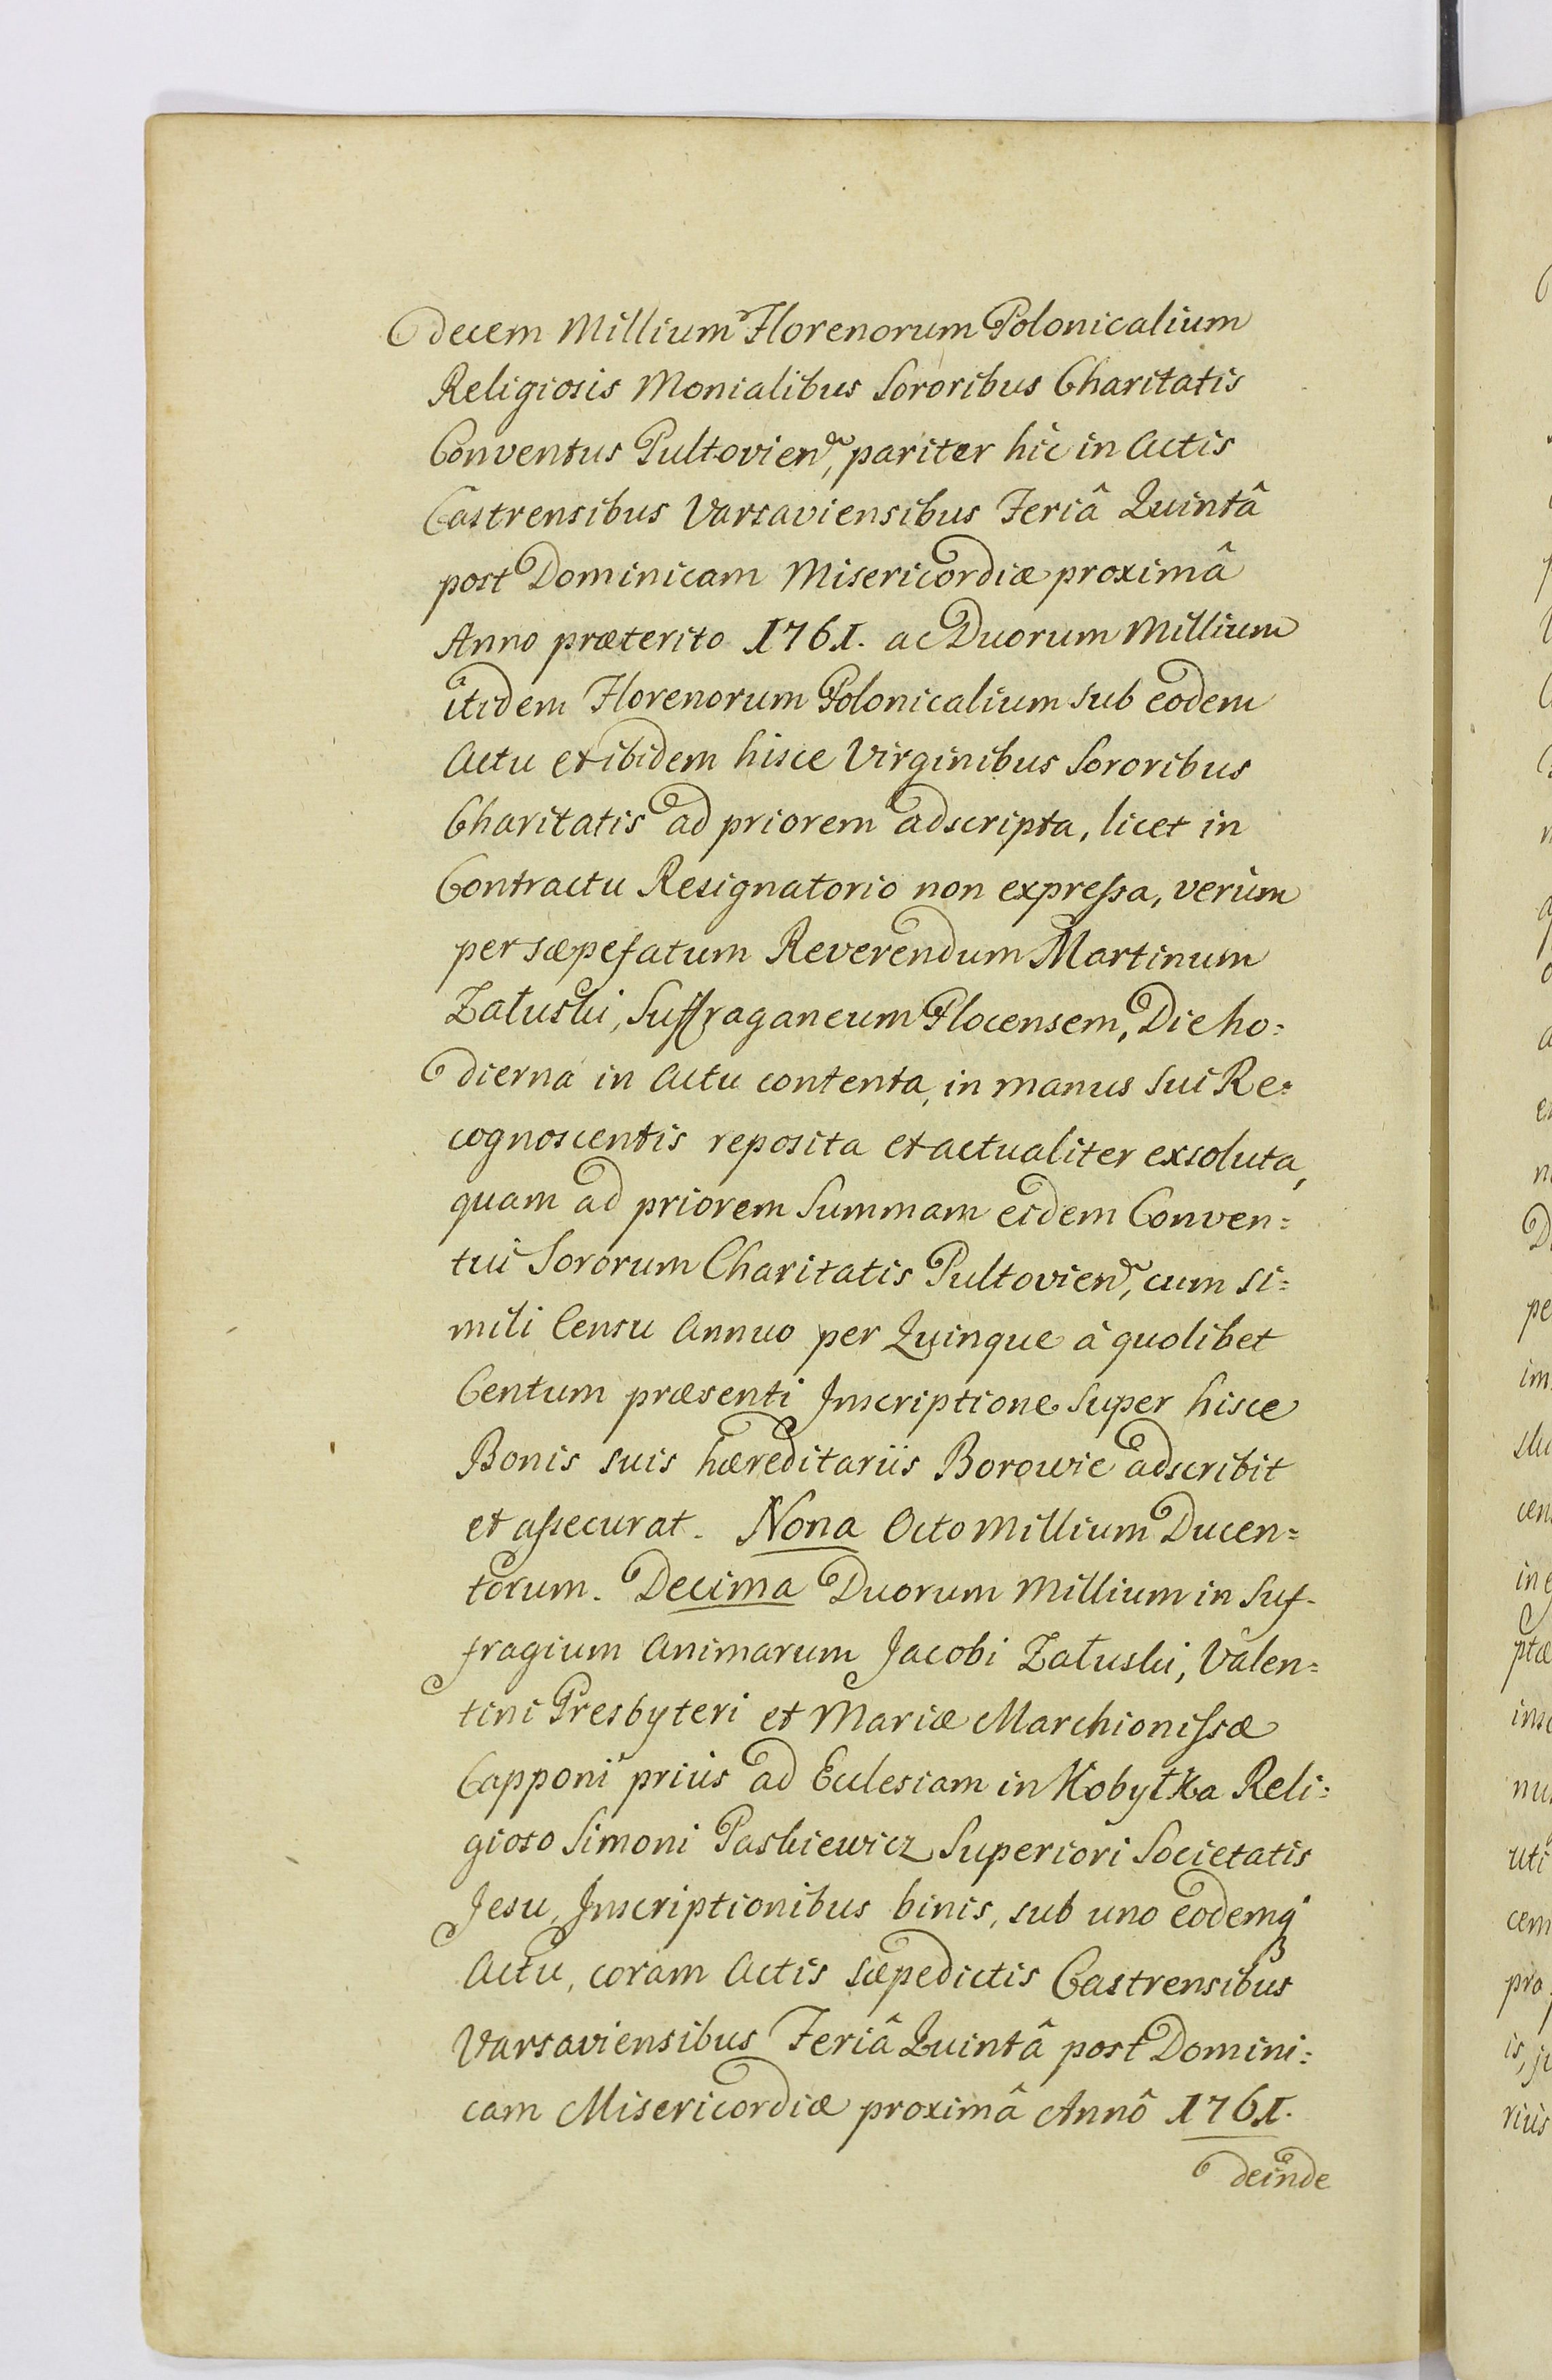 decem Millium Florenorum Polonicalium
Religiosis Monialibus Sororibus Charitatis
Conventus Pultovien, pariter hic in Actis
Castrensibus Varsaviensibus Feriâ Quintâ
post Dominicam Misericordiæ proximâ
Anno præterito 1761. ac Duorum Millium
itidem Florenorum Polonicalium sub eodem
Actu et ibidem hisce Virginibus Sororibus
Charitatis ad priorem adscripta, licet in
Contractu Resignatorio non expreſsa, verùm
per sæpefatum Reverendum Martinum
Załuski, Suffraganeum Plocensem, Die ho=
dierna in Actu contenta, in manus sui Re=
cognoscentis reposita et actualiter exsoluta,
quam ad priorem Summam eidem Conven=
tui Sororum Charitatis Pultovien, cum si=
mili Censu Annuo per Quinque à quolibet
Centum præsenti Inscriptione super hisce
Bonis suis hæreditariis Borowie adscribit
et aſsecurat. Nona Octo Millium Ducen=
torum. Decima Duorum Millium in Suf-
fragium Animarum Jacobi Załuski, Valen=
tini Presbyteri et Mariæ Marchioniſsæ
Capponi priùs ad Ecclesiam in Kobyłka Reli=
gioso Simoni Paskiewicz Superiori Societatis
Jesu, Inscriptionibus binis, sub uno eodemq́
Actu, coram Actis sæpedictis Castrensibus
Varsaviensibus Feriâ Quintâ post Domini=
cam Misericordiæ proximâ Annô 1761.
deinde